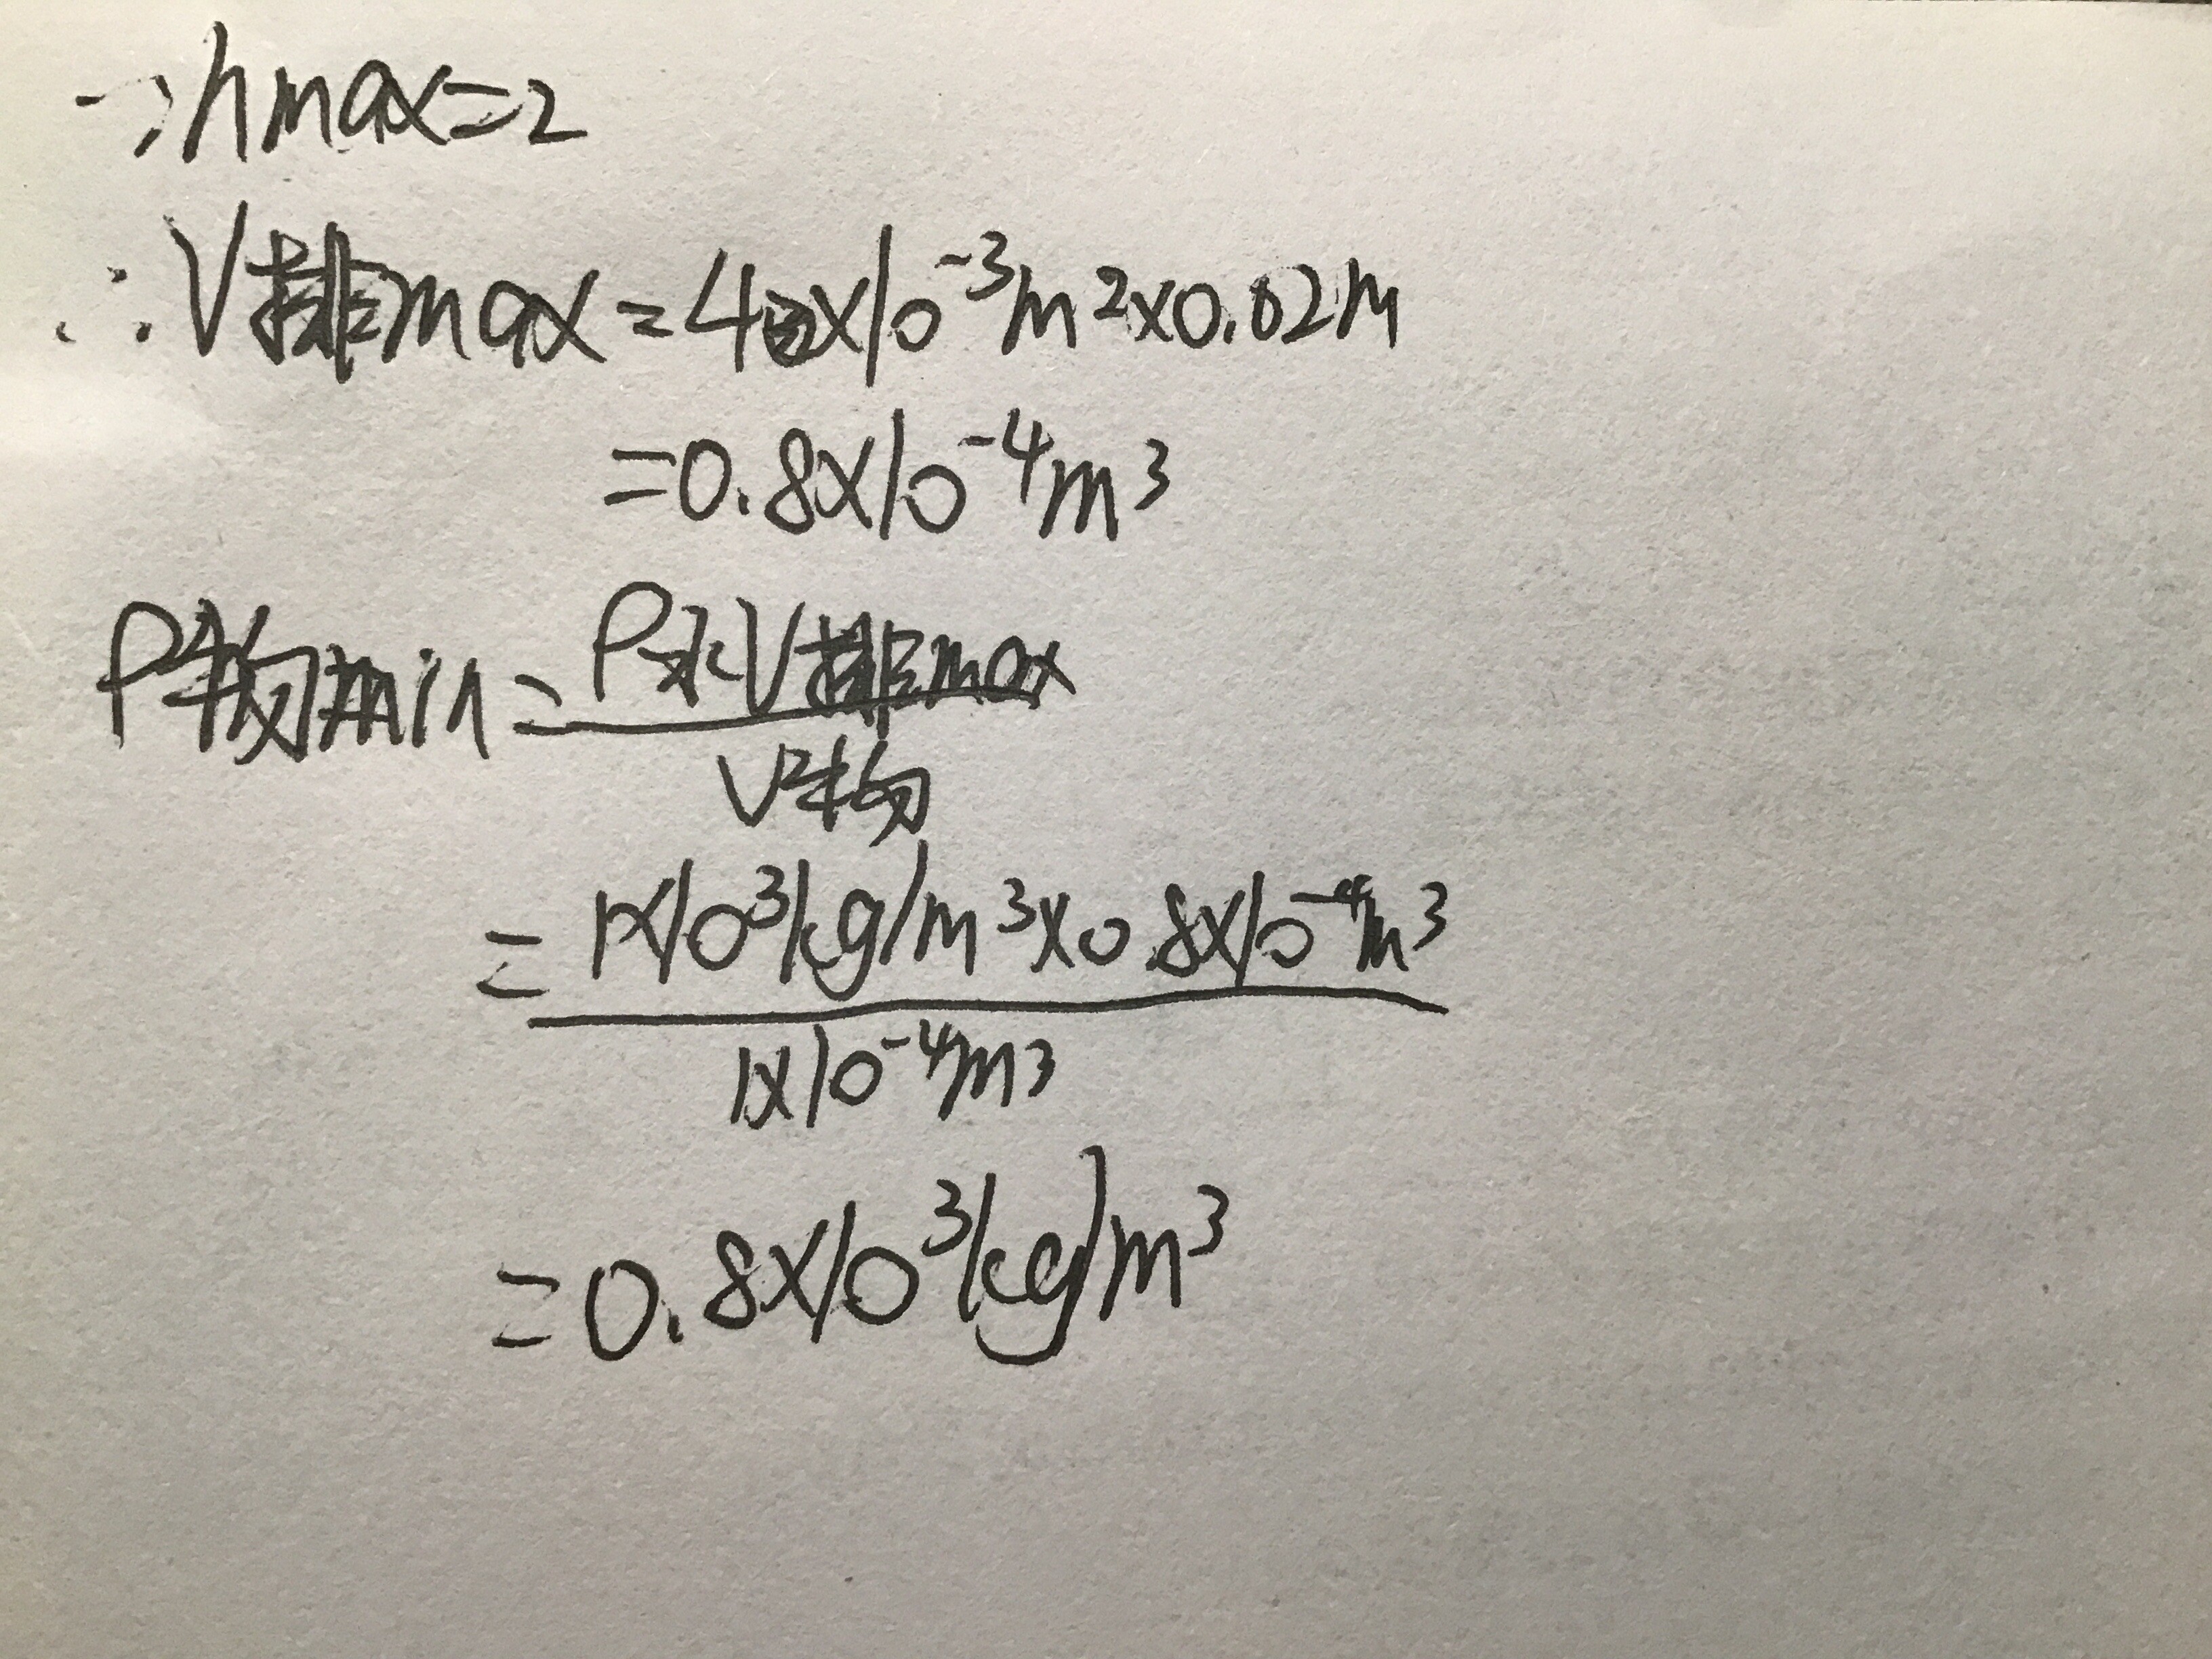 ∵hmax=2
∴V排max=4×10⁻³m²×0.02m
=0.8×10⁻⁴m³
ρ物min=ρ水V排max
V物
=1×10³kg/m³×0.8×10⁻⁴m³
1×10⁻⁴m³
=0.8×10³kg/m³